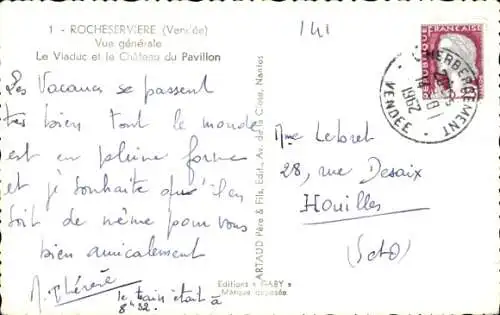 1 - ROCHESERVIERE (Vendée)
Vue générale
Le Viaduc et le Château du Pavillon
141
Les Vacances se passent
très bien tout le monde
est en pleine forme
et je souhaite qu'il en
soit de même pour vous
bien amicalement
M. Thérèse
le train était à
8h32.
ARTAUD Père & Fils, Edit., Av. de la Close, Nantes
Editions « GABY »
Marque déposée
REPUBLIQUE FRANÇAISE
L'HERBERGEMENT
1962
VENDEE
Mme Lebret
28, rue Desaix
Houilles
(S et O)